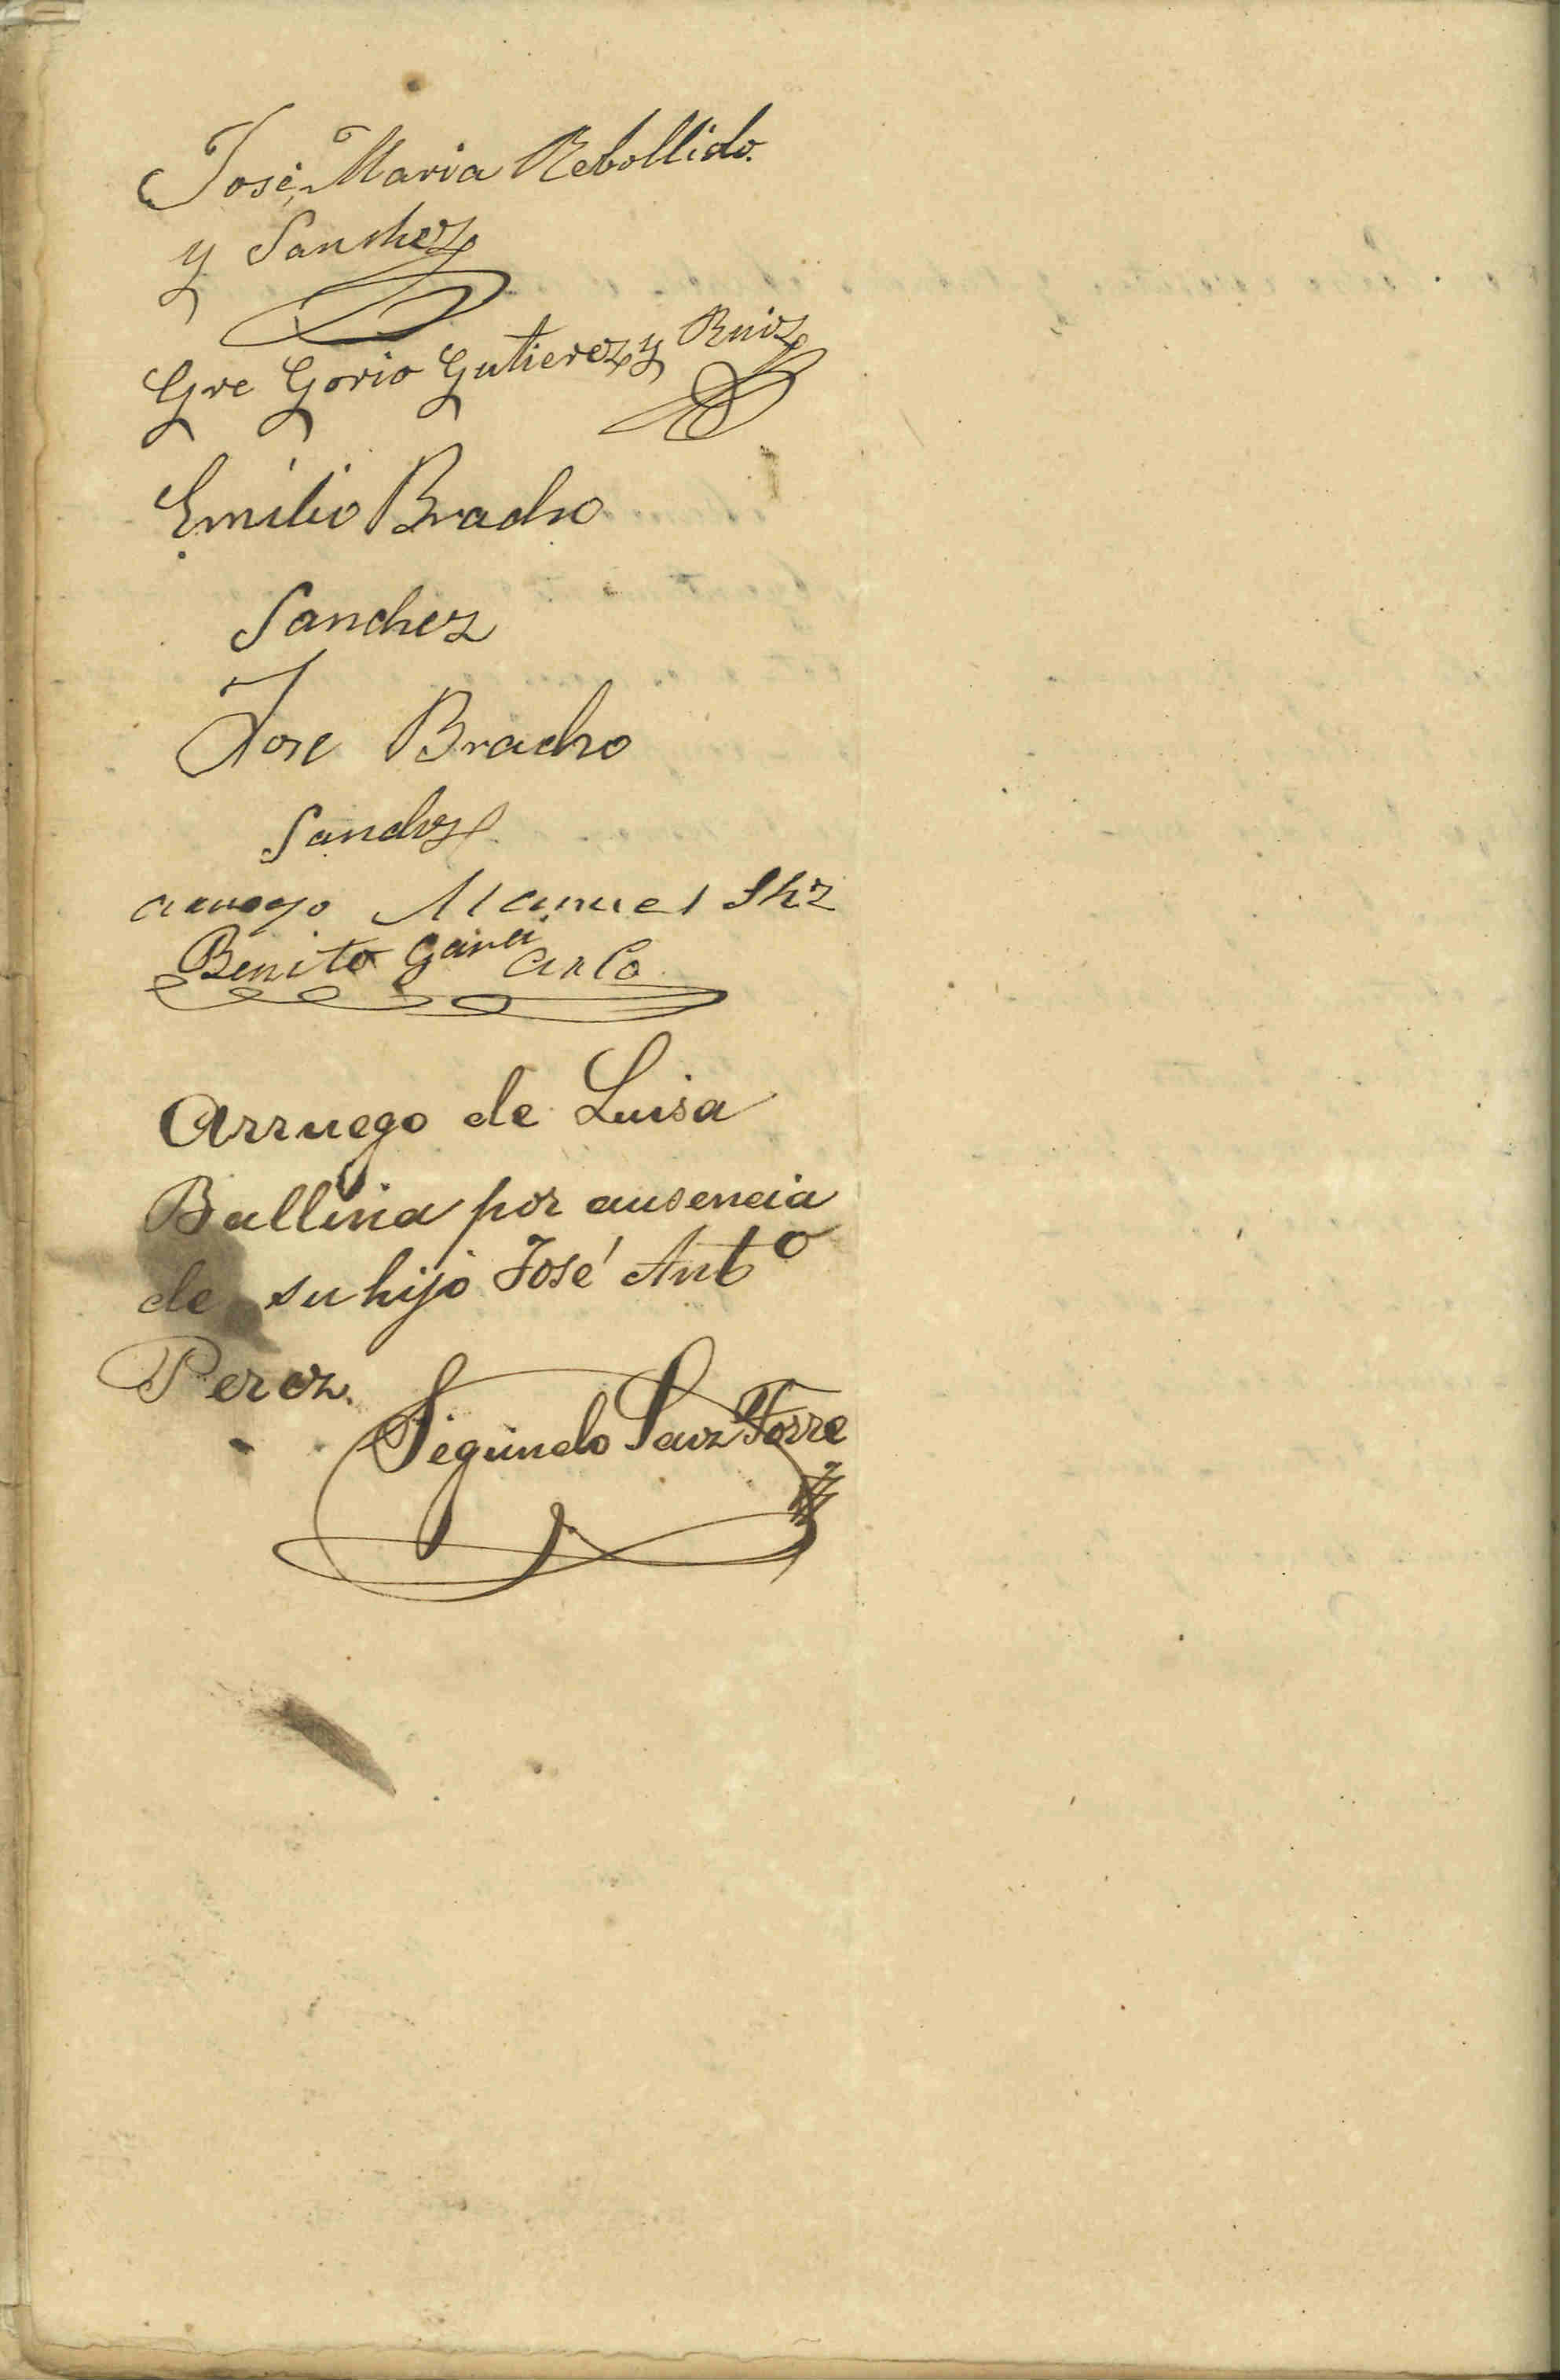 José Maria Rebollido
y Sanchez
Gre Gorio Gutierez y Ruiz
Emilio Bracho
Sanchez
Jose Bracho
Sanchez
Manuel Shz
Benito
Arruego de Luisa
Ballina por ausencia
de su hijo José Antº
Perez.
Segundo Saiz Torre